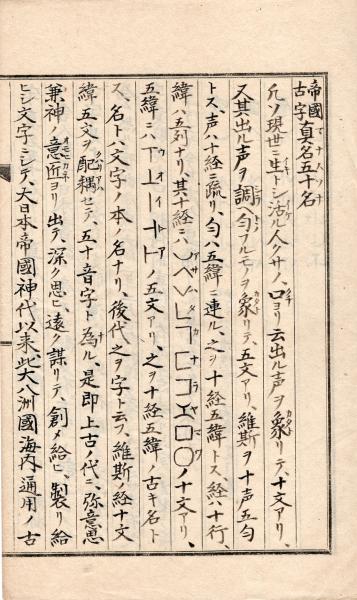 帝國
古字真名五十名
凡ソ現世ニ生トシ活ル人クサノ、口ヨリ云出ル声ヲ象リテ、十文アリ、
又其出ル声ヲ調匀フルモノヲ象リテ、五文アリ、維斯ヲ十声五匀
トス、声ハ十経ニ疏リ、匀ハ五緯ニ連ル、之ヲ十経五緯トス、経ハ十行、
緯ハ五列ナリ、其十経ニハ ノ十文アリ、
五緯ニハ ノ五文アリ、之ヲ十経五緯ノ古キ名ト
ス、名トハ文字ノ本ノ名ナリ、後代之ヲ字ト云フ、維斯経十文
緯五文ヲ配耦セテ、五十音字ト為ル、是即上古ノ代ニ、弥意思
兼神ノ意匠ヨリ出テ、深ク思ヒ遠ク謀リテ、創メ給ヒ、製リ給
ヒシ文字ニシテ、大日本帝國神代以来、此大八洲國海内通用ノ古